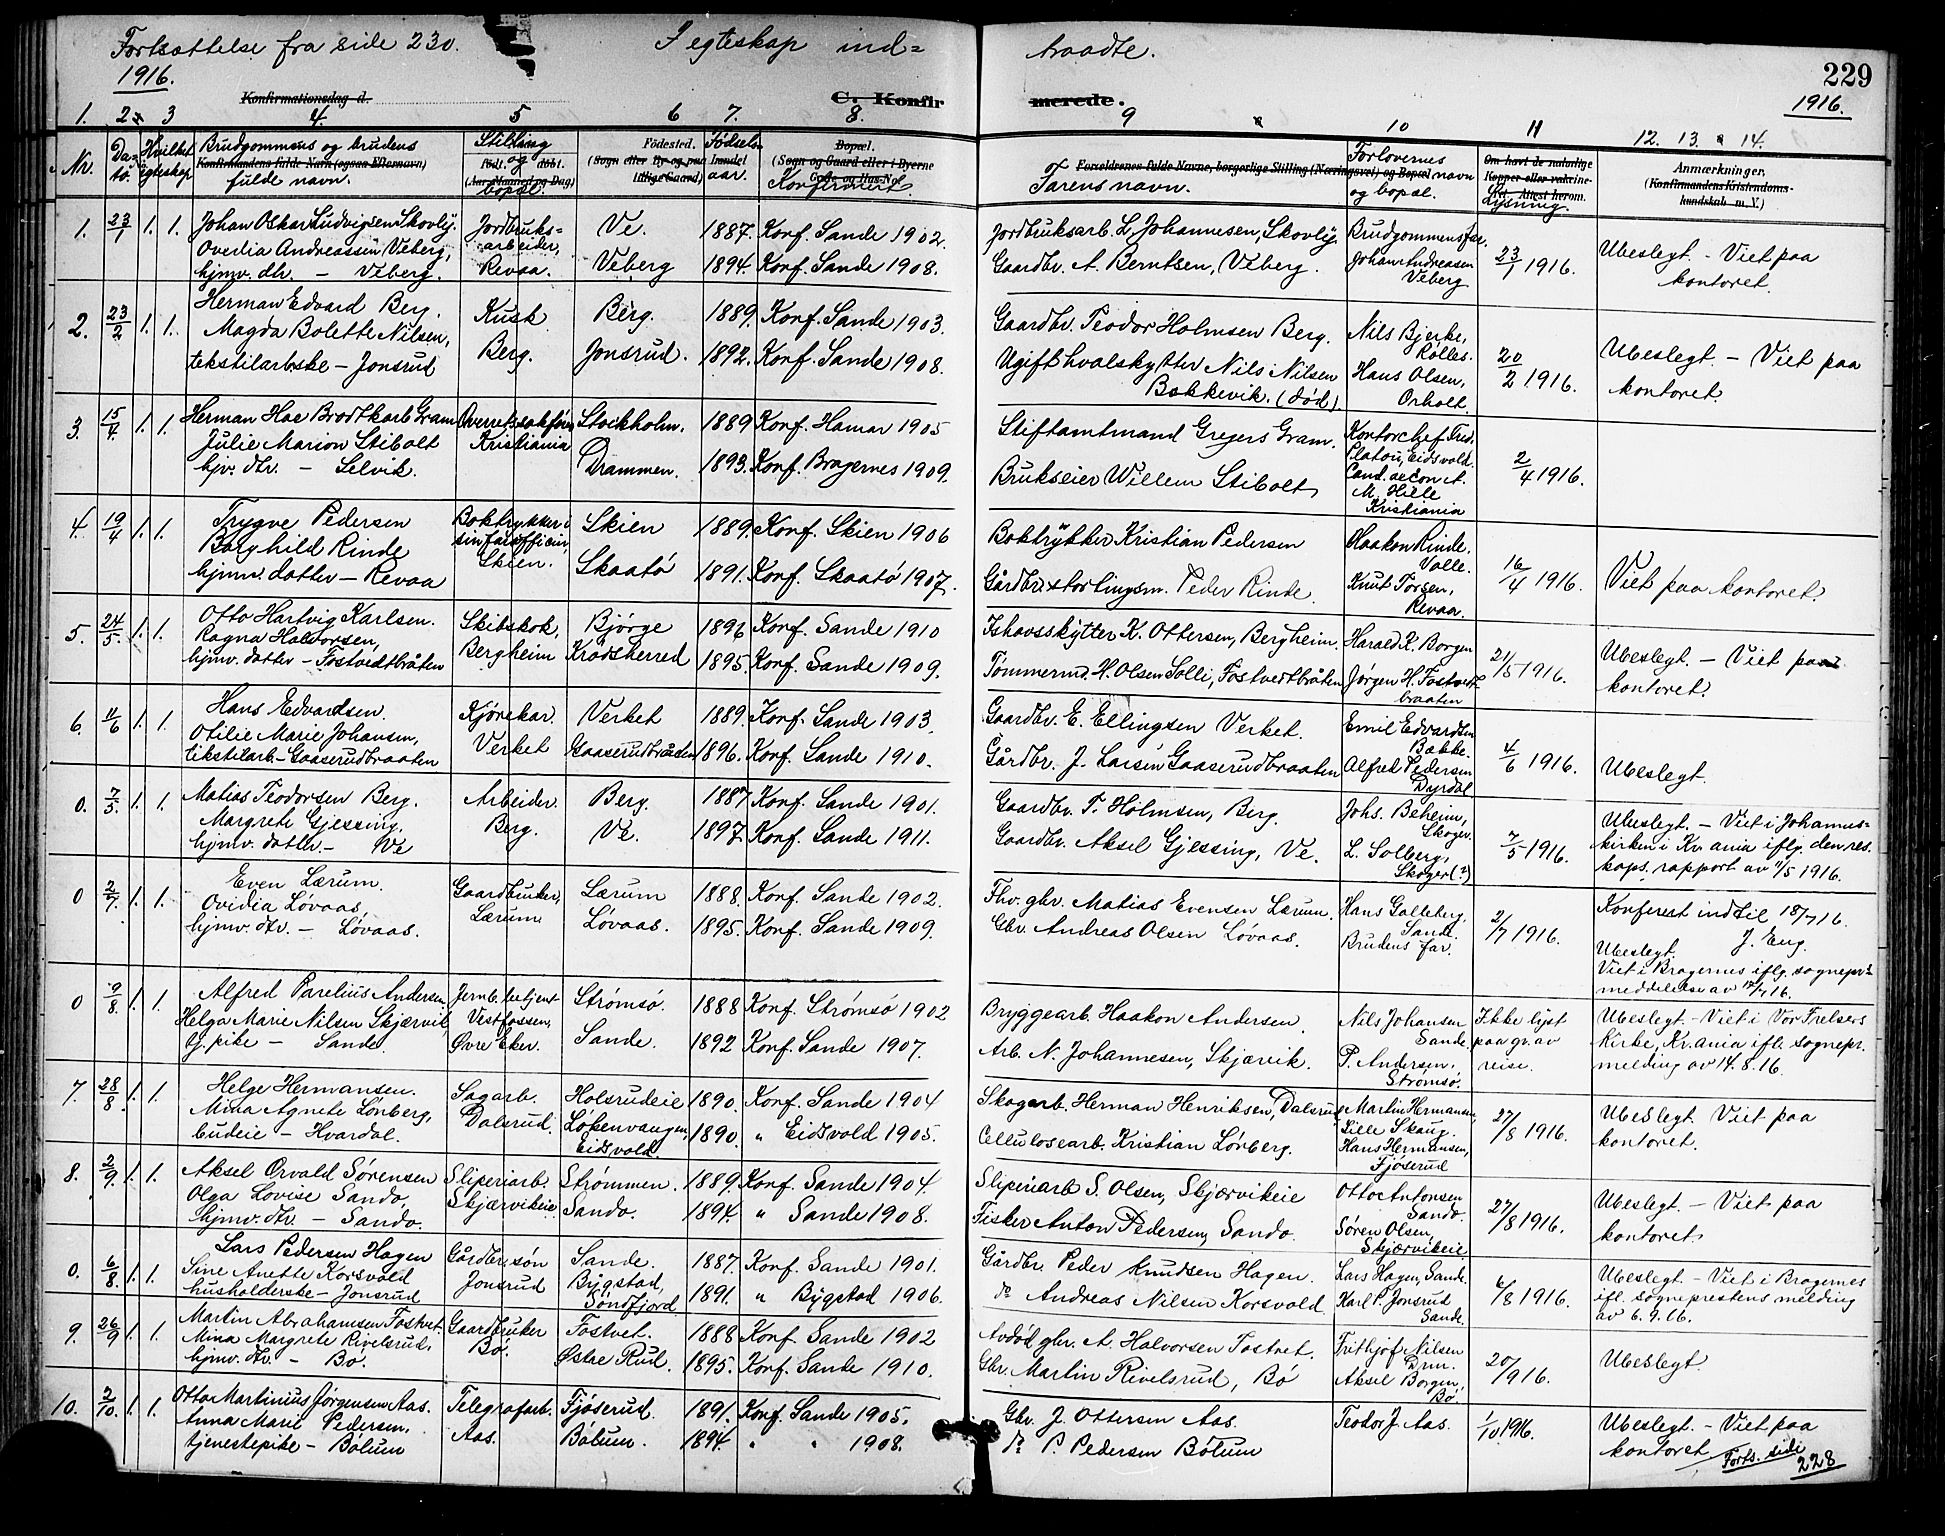 Fortsættelse fra side 230. I egteskap ind= traadte.
1916. 229
Konfirmationsdag d. C. Konfir merede. 1916.
1. 2. 3 4. 5 6 7. 8. 9 10 11 12. 13. 14.
Nr. Da-to. Hvilket egteskap Brudgommens og brudens fulde navn. Stilling og bopæl. Fødested. Fødselsaar. Konfirmert Farens navn. Forlovernes navn og bopæl. Lysning. Anmærkninger.
Konfirmandens fulde Navn (ogsaa Efternavn)
(Aar, Maaned og Dag)
(Sogn eller By og paa Landet tillige Gaard)
Bopæl.
(Sogn og Gaard eller i Byerne Gade og Hus-No.)
Forældrenes fulde Navne, borgerlige Stilling (Næringsvei) og Bopæl
Om havt de naturlige Kopper eller vaccineret. Attest herom.
(Konfirmandens Kristendomskundskab m. V.)
1. 23/1 1. 1. Johan Oskar Ludvigsen Skovly. Jordbruks- Ve. 1887. Konf. Sande 1902. Jordbruksarb. L. Johannesen, Skovly. Brudgommens far. 23/1 1916. Ubeslegt. - Viet paa
Ovedia Andreassen Veberg, arbeider, Veberg 1894. Konf. Sande 1908. Gaardbr. A. Berntsen, Veberg. Johan Andreasen kontoret.
hjmv. dtr. - Veberg. Revaa. Veberg
2. 23/2 1. 1. Herman Edvard Berg. Kusk Berg. 1889. Konf. Sande 1903. Gaardbr. Teodor Holmsen Berg. Nils Bjerke, 20/2 1916. Ubeslegt. - Viet paa
Magda Bolette Nilsen, Berg. Jonsrud. 1892. Konf. Sande 1908. Ugift hvalskytter Nils Nilsen Rølles. kontoret.
tekstilarbske - Jonsrud Bakkevik. (død). Hans Olsen,
Orholt.
3. 15/4. 1. 1. Herman Hoe Brodtkorb Gram Overretssakfører Stockholm. 1889 Konf. Hamar 1905 Stiftamtmand Gregers Gram. Kontorchef Fred. 2/4 1916.
Julie Marion Stibolt Kristiania Drammen. 1893. Konf. Bragernes 1909. Brukseier Willem Stibolt Platou, Eidsvold.
hjv. dtr. - Selvik. Cand. oecon A.
M. Hille
Kristiania
4. 19/4 1. 1. Trygve Pedersen Boktrykker i Skien 1889. Konf. Skien 1906 Boktrykker Kristian Pedersen Haakon Rinde. 16/4 1916. Viet paa kontoret.
Borghild Rinde sin fars officin, Skaatø 1891. Konf. Skaatø 1907. Gårdbr. & stortingsm. Peder Rinde. Valle.
hjmv. datter - Revaa Skien. Knut Torsen,
Revaa.
5. 24/5. 1. 1. Otto Hartvig Karlsen. Skibskok, Bjørge 1896 Konf. Sande 1910 Ishavsskytter K. Ottersen, Bergheim. Harald K. Borgen 21/5 1916. Ubeslegt. - Viet paa
Ragna Halvorsen, Bergheim Krødsherred 1895. Konf. Sande 1909. Tømmermd. H. Olsen Solli, Fostvedtbråten Jørgen H. Fostvedt- kontoret.
hjmv. datter - Fostvedtbråten braaten
6. 4/6 1. 1. Hans Edvardsen. Kjørekar. Verket 1889. Konf. Sande 1903. Gaardbr. E. Ellingsen Verket. Emil Edvardsen 4/6 1916. Ubeslegt.
Otilie Marie Johansen, Verket Gaaserudbraaten 1896. Konf. Sande 1910. Gårdbr. J. Larsen Gaaserudbraaten Bakke.
tekstilarb. - Gaaserudbraaten Alfred Pedersen
Dyrdal
0. 7/5. 1. 1. Matias Teodorsen Berg. Arbeider. Berg. 1887 Konf. Sande 1901. Gaardbr. T. Holmsen, Berg. Johs. Beheim, 7/5 1916. Ubeslegt. - Viet i Johannes-
Margrete Gjessing, Berg. Ve. 1897. Konf. Sande 1911. Gaardbr. Aksel Gjessing, Ve. Skoger. kirken i Kr.ania iflg. den res.
hjmv. datter - Ve L. Solberg, kaps. rapport av 11/5 1916.
Skoger (?)
0 2/7. 1. 1. Even Lærum. Gaardbruker, Lærum 1888. Konf. Sande 1902. Fhv. gbr. Matias Evensen Lærum. Hans Galleberg. 2/7 1916. Konferert indtil 18/7 16.
Ovidia Løvaas, Lærum Løvaas. 1895. Konf. Sande 1909. Gbr. Andreas Olsen Løvaas. Sande. J. Eng.
hjmv. dtr. - Løvaas. Brudens far. Ubeslegt.
Viet i Bragernes iflg. sognepr.
meddelelse av 12/7 16.
0 9/8. 1. 1. Alfred Parelius Andersen Jernb.betjent Strømsø. 1888 Konf. Strømsø 1902 Bryggearb. Haakon Andersen. Nils Johansen Ikke lyst Ubeslegt. - Viet i Vor Frelsers
Helga Marie Nilsen Skjærvik, Vestfossen, Sande. 1892 Konf. Sande 1907. Arb. N. Johannesen, Skjærvik. Sande. paa gr. av Kirke, Kr.ania ifl. sognepr.
tj. pike - Sande. Øvre Eker. P. Andersen, reise. melding av 14.8.16.
Strømsø.
7. 28/8. 1. 1. Helge Hermansen. Sagarb. Holsrudeie 1890. Konf. Sande 1904 Skogarb. Herman Henriksen, Dalsrud Martin Hermansen, 27/8 1916. Ubeslegt. Viet paa
Mina Agnete Lønberg, Dalsrud. Løkenvangen, 1890. " Eidsvold 1905. Cellulosearb. Kristian Lønberg. Lille Skaug. kontoret.
budeie - Hvardal. Eidsvold. Hans Hermansen,
Fjøserud
8. 2/9. 1. 1. Aksel Orvald Sørensen Sliperiarb. Strømmen. 1889. Konf. Sande 1904. Sliperiarb S. Olsen, Skjærvikeie Otto Antonsen 27/8 1916. Ubeslegt. - Viet paa
Olga Lovise Sando, Skjærvikeie. Sando. 1894. " Sande 1908. Fisker Anton Pedersen, Sando. Sando. kontoret.
hjmv. dtr. - Sando. Søren Olsen,
Skjærvikeie
0. 6/8. 1. 1. Lars Pedersen Hagen Gårdbr.søn Sande. 1887. Konf. Sande 1901. Gårdbr. Peder Knudsen Hagen. Lars Hagen, Sande. 6/8 1916. Ubeslegt. - Viet i Bragernes
Sine Anette Korsvold Jonsrud Bygstad, 1891. " Bygstad 1906. do Andreas Nilsen Korsvold. Karl P. Jonsrud ifl. sogneprestens melding
husholderske - Jonsrud Søndfjord Sande. av 6.9.16.
9. 26/9 1. 1. Martin Abrahamsen Fostvet. Gaardbruker Fostvet. 1888 Konf. Sande 1902 Avdød gbr. A. Halvorsen Fostvet. Frithjof Nilsen 20/9 16. Ubeslegt.
Mina Margrete Rivelsrud, Bø. Østre Rud. 1895. Konf. Sande 1910. Gbr. Martin Rivelsrud, Bø Drm.
hjmv. dtr. - Bø. Aksel Borgen,
Bø.
10. 2/10. 1. 1. Otto Martinius Jørgensen Aas. Telegrafarb. Fjøserud. 1891. Konf. Sande 1905. Gbr. J. Ottersen Aas. Teodor J. Aas. 1/10. 1916. Ubeslegt. - Viet paa
Anna Marie Pedersen, Aas. Bølum. 1894. " " 1908. do P. Pedersen Bølum kontoret
tjenestepike - Bølum Forts. side 228